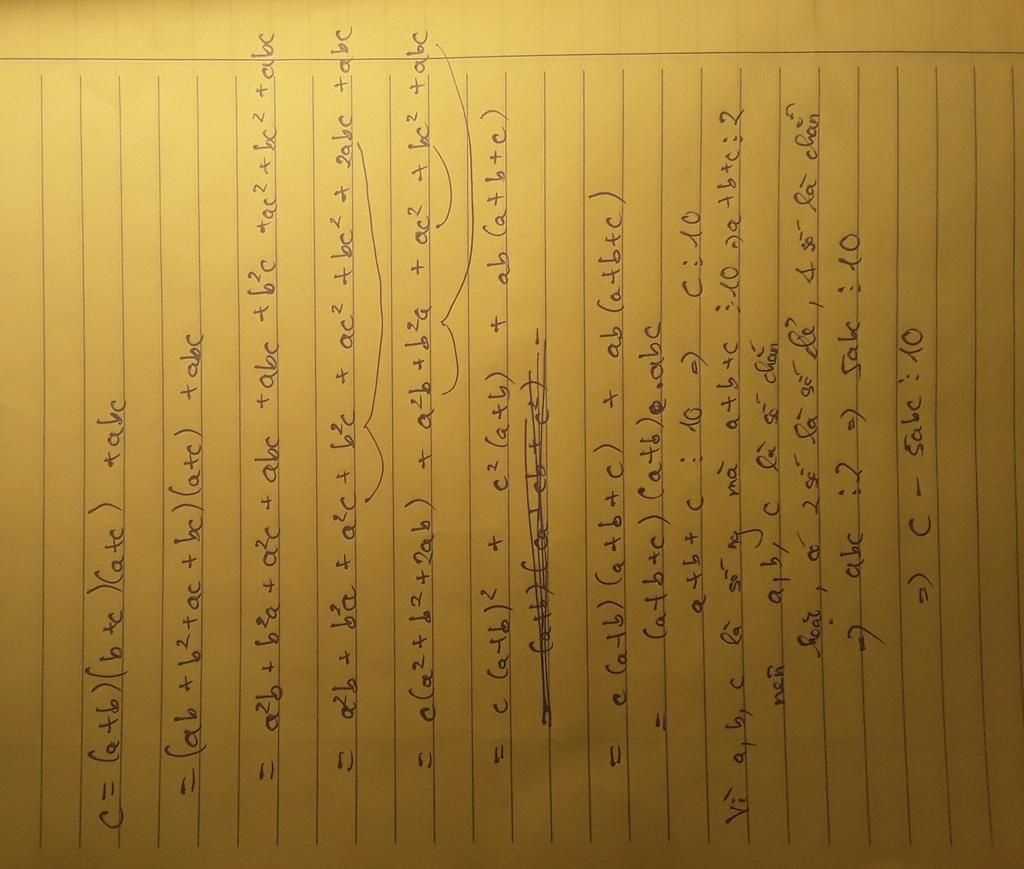 C = (a+b)(b+c)(a+c) + abc
= (ab + b² + ac + bc)(a+c) + abc
= a²b + b²a + a²c + abc + abc + b²c + ac² + bc² + abc
= a²b + b²a + a²c + b²c + ac² + bc² + 2abc + abc
= c(a² + b² + 2ab) + a²b + b²a + ac² + bc² + abc
= c(a+b)² + c²(a+b) + ab(a+b+c)
= c(a+b)(a+b+c) + ab(a+b+c)
= (a+b+c)(a+b)c.abc
a+b+c ⋮ 10 => C ⋮ 10
Vì a, b, c là số ng mà a+b+c ⋮ 10 => a+b+c ⋮ 2
nên a, b, c là số chẵn
hoặc, có 2 số là số lẻ, 1 số là chẵn
=> abc ⋮ 2 => 5abc ⋮ 10
=> C - 5abc ⋮ 10